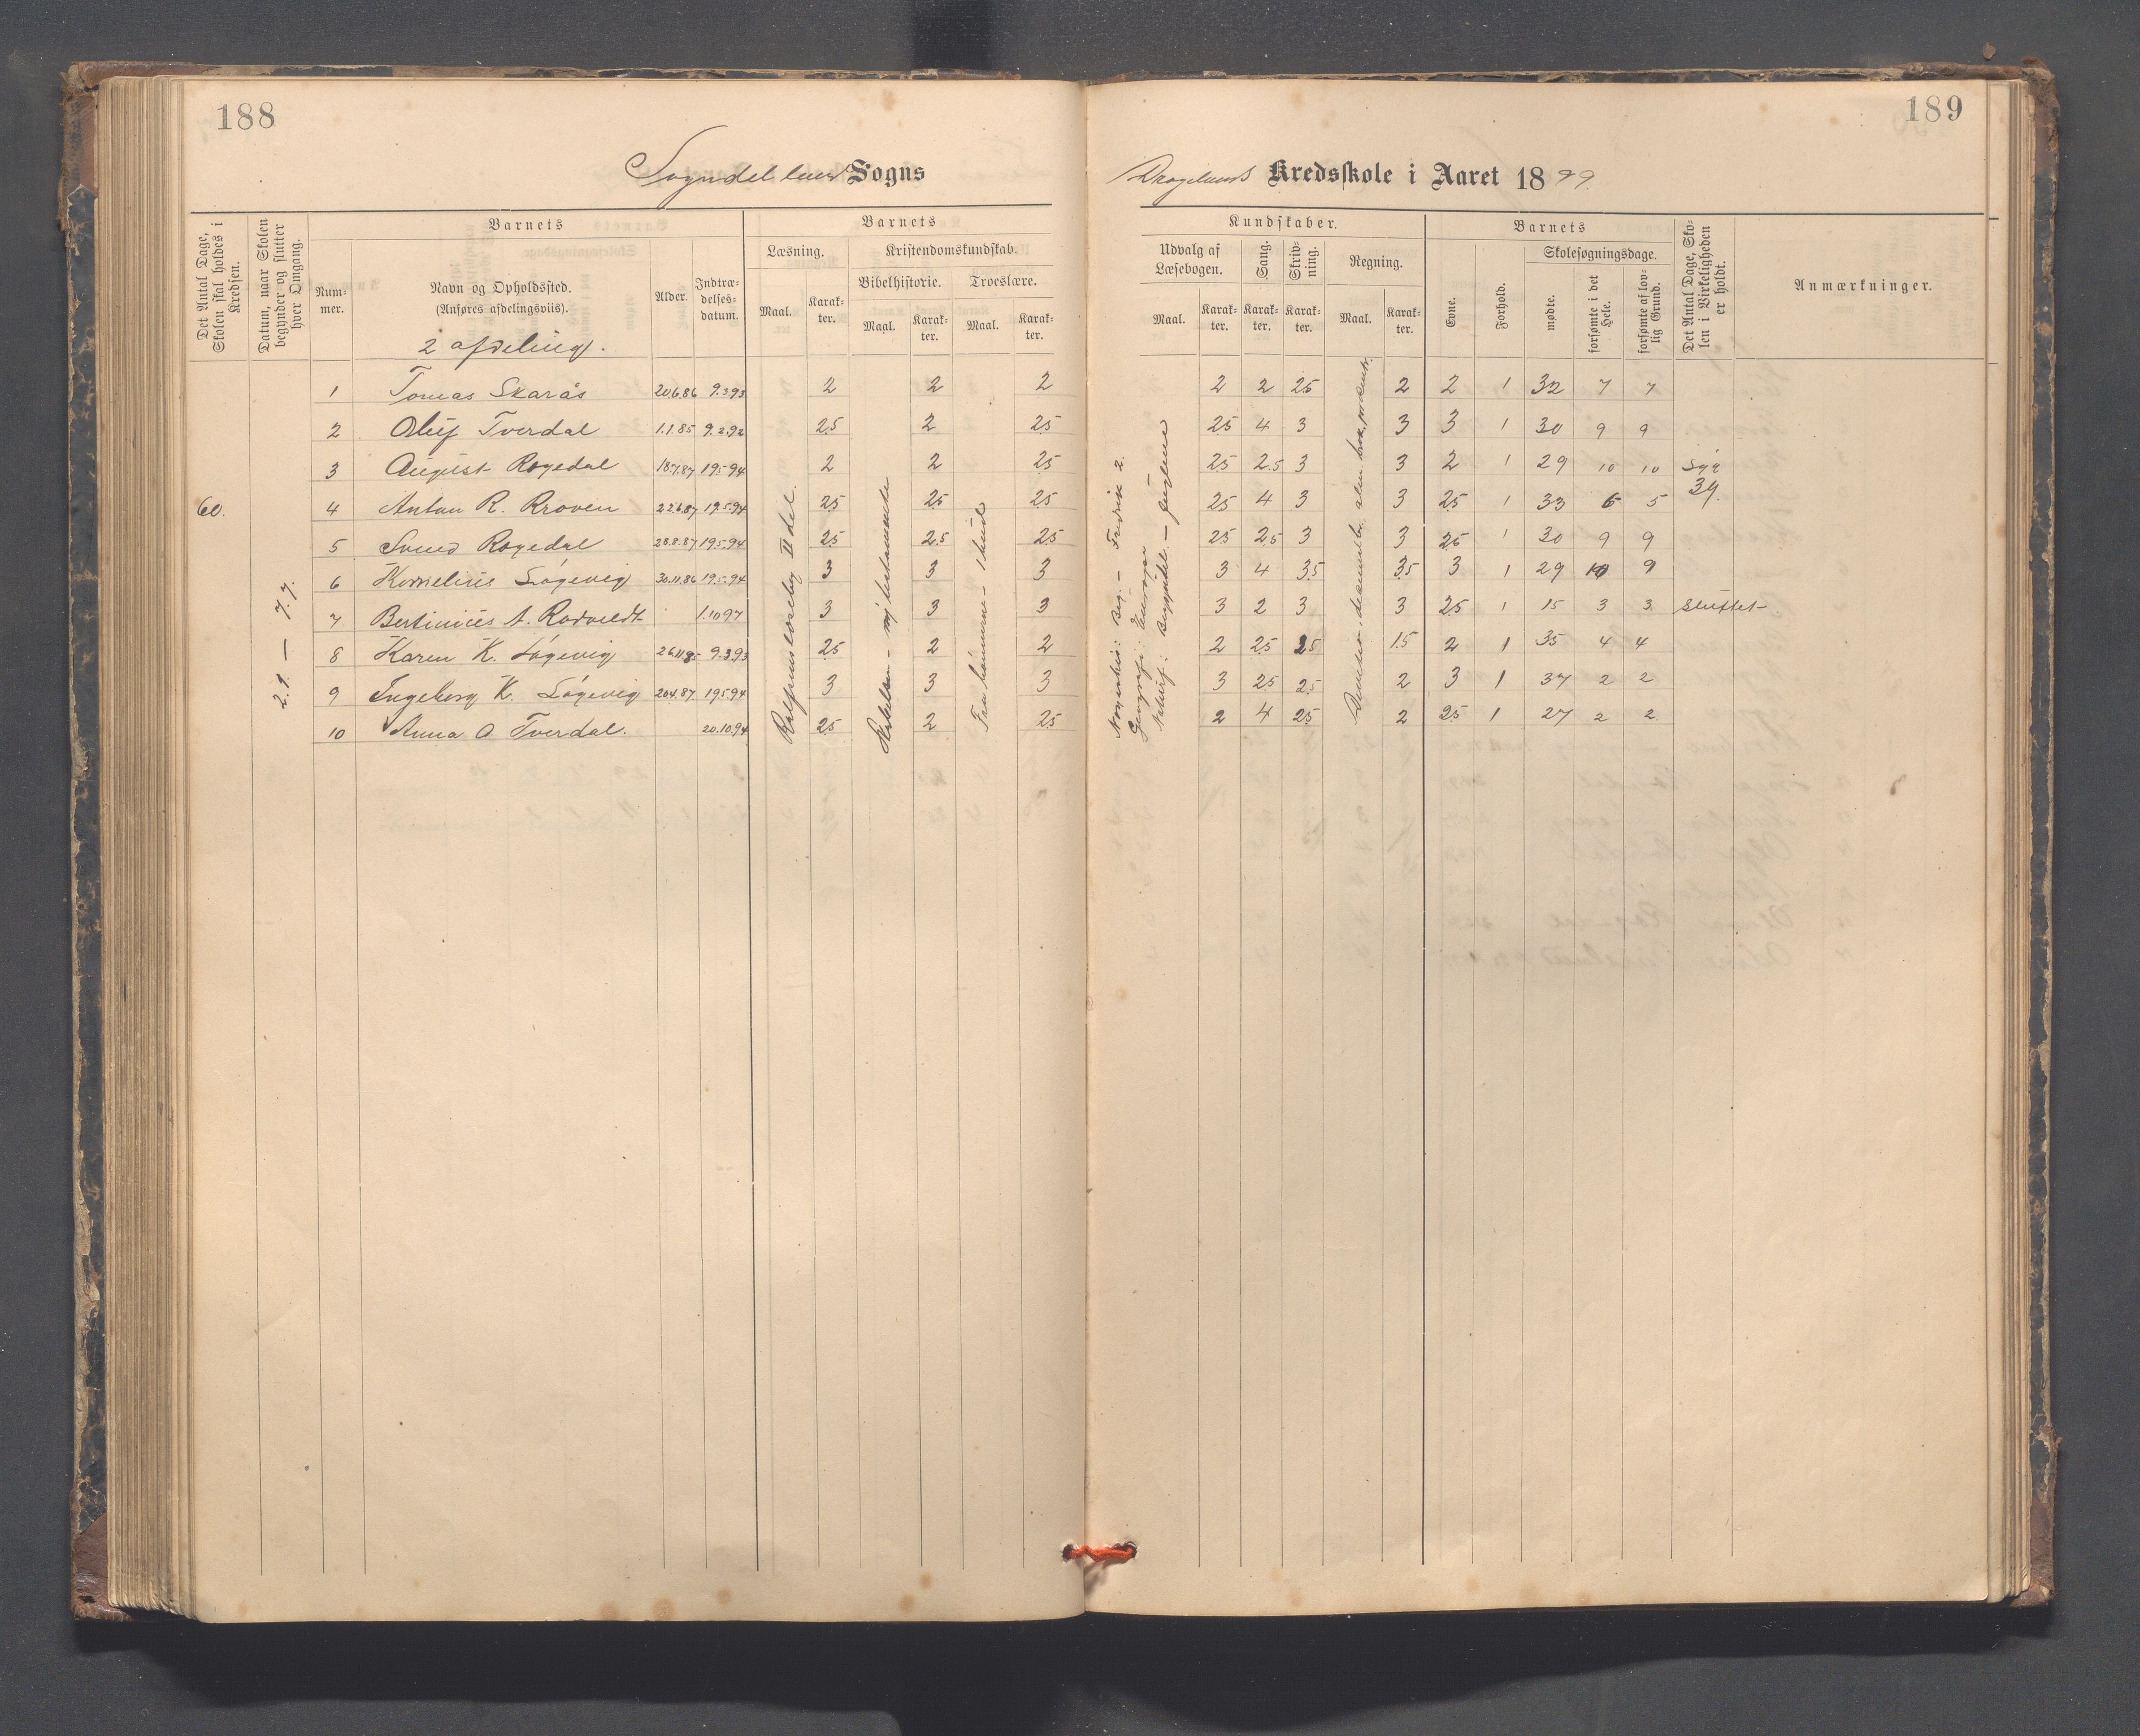 188
Sogns
Det Antal Dage, Skolen skal holdes i Kredsen.
Datum, naar Skolen begynder og slutter hver Omgang.
Barnets
Nummer.
Navn og Opholdssted.
(Anføres afdelingsviis).
2 afdeling.
Alder.
Indtrædelsesdatum.
Barnets
Læsning.
Kristendomskundskab.
Bibelhistorie.
Troeslære.
Maal.
Karakter.
Maal.
Karakter.
Maal.
Karakter.
60.
2.1. — 7.7.
II del.
1 Tomas Skarås 20.6.86 9.3.93 2 2 2
2 Oluf Tverdal 1.1.85 9.2.92 2.5 2 2.5
3 August Rogedal 18.7.87 19.5.94 2 2 2.5
4 Anton R. Kroven 22.6.87 19.5.94 2.5 2.5 2.5
5 Svend Rogedal 28.8.87 19.5.94 2.5 2.5 2.5
6 Kornelius Løgevig 30.11.86 19.5.94 3 3 3
7 Bertinius A. Rodvedt 1.10 97 3 3 3
8 Karen K. Løgevig 26.11.85 9.3.93 2.5 2 2
9 Ingeborg K. Løgevig 20.4.87. 19.5.94 3 3 3
10 Anna O. Tverdal. 20.10.94 2.5 2 2.5
189
Kredsskole i Aaret 1899.
Kundskaber.
Udvalg af Læsebogen.
Sang.
Skrivning.
Regning.
Maal.
Karakter.
Karakter.
Karakter.
Maal.
Karakter.
Barnets
Evne.
Forhold.
Skolesøgningsdage.
mødte.
forsømte i det Hele.
forsømte af lovlig Grund.
Det Antal Dage, Skolen i Virkeligheden er holdt.
Anmærkninger.
Fredrik 2.
Geografi: Europa
2 2 2.5 2 2 1 32 7 7
2.5 4 3 3 3 1 30 9 9
2.5 2.5 3 3 2 1 29 10 10 Syg
39.
2.5 4 3 3 2.5 1 33 6 5
2.5 2.5 3 3 2.5 1 30 9 9
3 4 3.5 3.5 3 1 29 10 9
3 2 3 3 2.5 1 15 3 3 sluttet
2 2.5 2.5 1.5 2 1 35 4 4
3 2.5 2.5 2 3 1 37 2 2
2 4 2.5 2 2.5 1 27 2 2